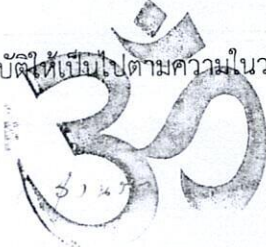 บัติให้เป็นไปตามความในว